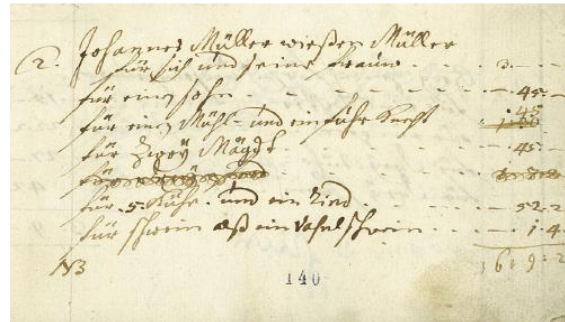 2. Johannes Müller wießen Müller
für sich und seine frauw - - - 3 - -
für einen sohn - - - - - - - 45 -
für einen Mühl- und ein fuhr knecht 45
für Zweÿ Mägdt - 45 -
für 5 Kühe und ein Rind - - - - 52 - 2
für schwein alß ein Vaselschwein - - - 1 - 4
NB 6 : 9 : 2
140